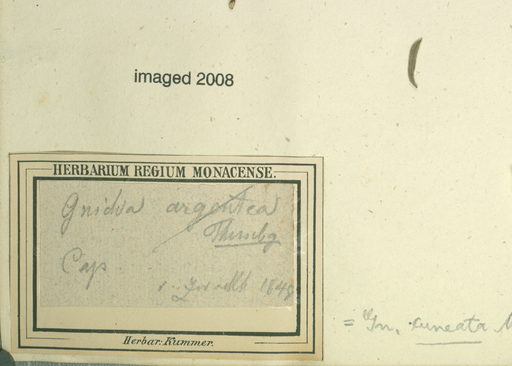 imaged 2008
HERBARIUM REGIUM MONACENSE.
Gnidia argentea
Thunbg
Cap
1848
Herbar. Kummer.
= Gn. cuneata